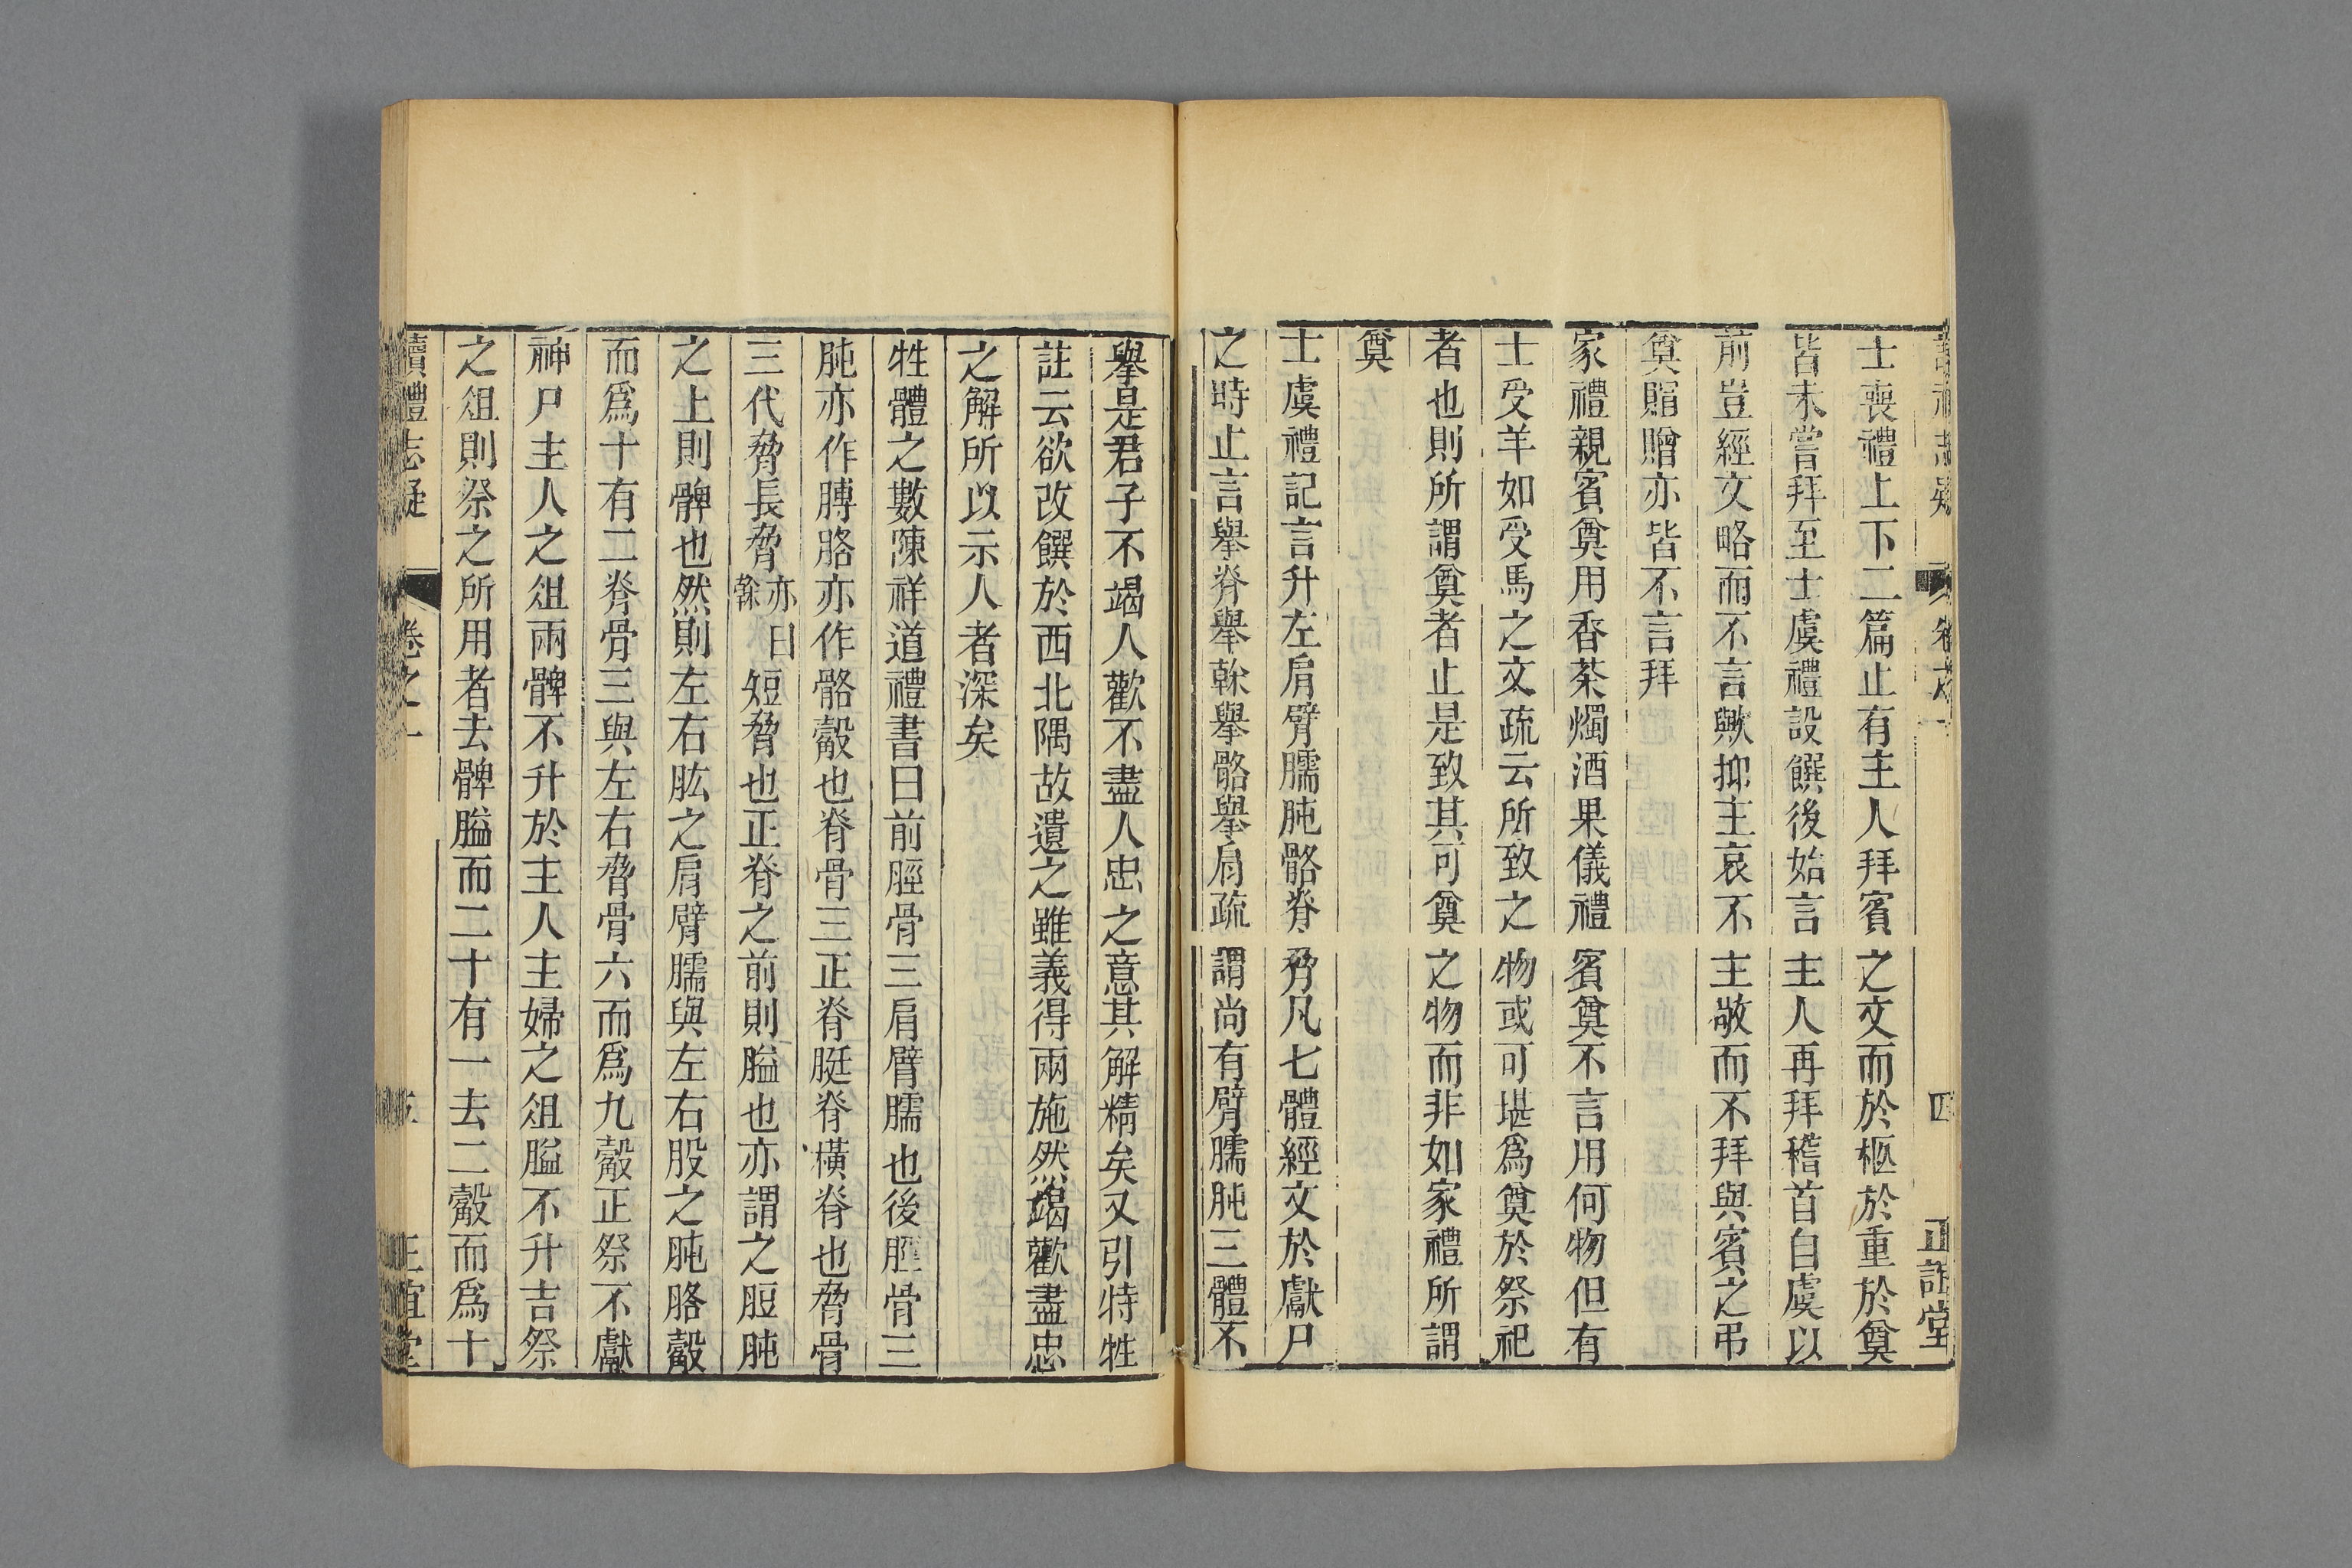 士喪禮上下二篇止有主人拜賓之文而於柩於重於奠
皆未嘗拜至士虞禮設饌後始言主人再拜稽首白虞以
前豈經文略而不言歟抑主哀不主敬而不拜與賓之弔
奠賵贈亦皆不言拜
家禮親賓奠用香茶燭酒果儀禮賓奠不言用何物但有
士受羊如受馬之文疏云所致之物或可堪爲奠於祭祀
者也則所謂奠者止是致其可奠之物而非如家禮所謂
奠
士虞禮記言升左肩臂臑肫骼脊脅凡七體經文於獻尸
之時止言舉脊舉幹舉骼舉肩疏謂尚有臂臑肫三體不
四
正誼堂
舉是君子不竭人歡不盡人忠之意其解精矣又引特牲
註云欲改饌於西北隅故遺之雖義得兩施然竭歡盡忠
之解所以示人者深矣
牲體之數陳祥道禮書曰前脛骨三肩臂臑也後脛骨三
肫亦作膊胳亦作骼觳也脊骨三正脊脡脊橫脊也脅骨
三代脅長脅亦曰幹短脅也正脊之前則膉也亦謂之脰肫
之上則髀也然則左右肱之肩臂臑與左右股之肫胳觳
而爲十有二脊骨三與左右脅骨六而爲九觳正祭不獻
神尸主人之俎兩髀不升於主人主婦之俎膉不升吉祭
之俎則祭之所用者去髀膉而二十有一去二觳而爲十
讀禮志疑
卷之
正誼堂